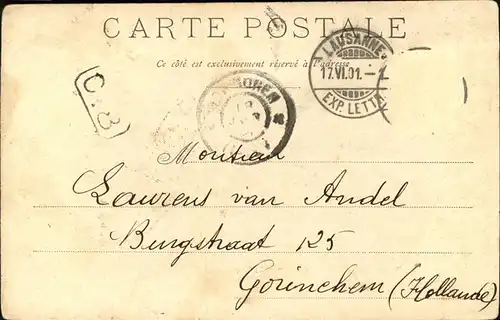 CARTE POSTALE
Ce côté est exclusivement réservé à l'adresse
LAUSANNE
17.VI.01.-1
EXP. LETTR.
C.3
Laurens van Andel
Burgstraat 125
Gorinchem (Hollande)